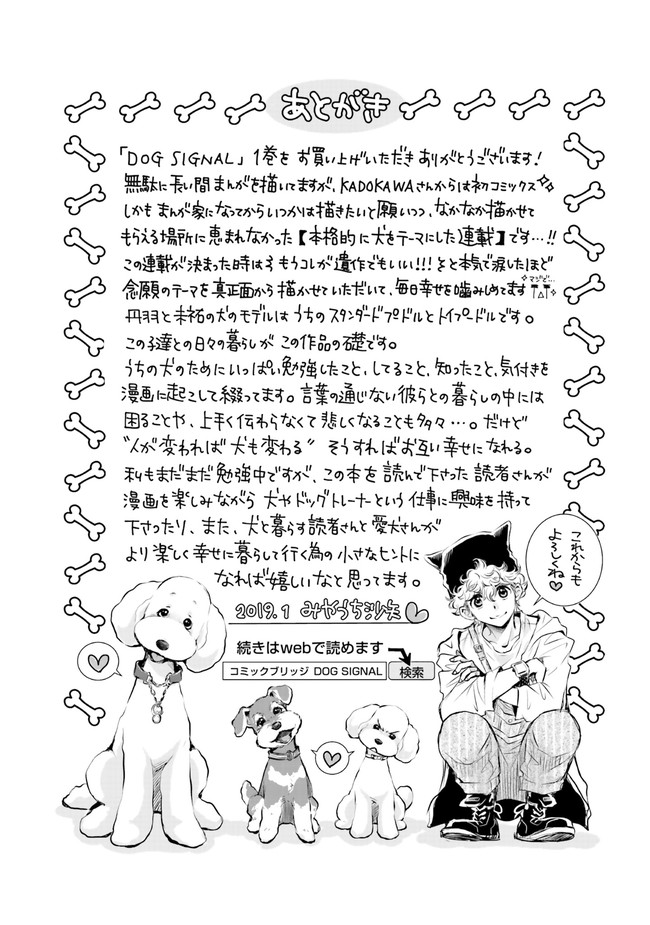 あとがき
「DOG SIGNAL」1巻をお買い上げいただきありがとうございます!
無駄に長い間まんがを描いてますが、KADOKAWAさんからは初コミックス
しかもまんが家になってからいつかは描きたいと願いつつ、なかなか描かせて
もらえる場所に恵まれなかった【本格的に犬をテーマにした連載】です…!!
この連載が決まった時はもうコレが遺作でもいい!!!と本気で涙したほど
念願のテーマを真正面から描かせていただいて、毎日幸せを噛みしめてます
マジで…
丹羽と未祐の犬のモデルはうちのスタンダードプードルとトイプードルです。
この子達との日々の暮らしがこの作品の礎です。
うちの犬のためにいっぱい勉強したこと、してること、知ったこと、気付きを
漫画に起こして綴ってます。言葉の通じない彼らとの暮らしの中には
困ることや、上手く伝わらなくて悲しくなることも多々…。だけど
“人が変われば犬も変わる” そうすればお互い幸せになれる。
私もまだまだ勉強中ですが、この本を読んで下さった読者さんが
漫画を楽しみながら犬やドッグトレーナーという仕事に興味を持って
下さったり、また、犬と暮らす読者さんと愛犬さんが
より楽しく幸せに暮らして行く為の小さなヒントに
なれば嬉しいなと思ってます。
2019.1 みやうち沙矢
これからも
よろしくね♡
続きはwebで読めます
コミックブリッジ DOG SIGNAL 検索